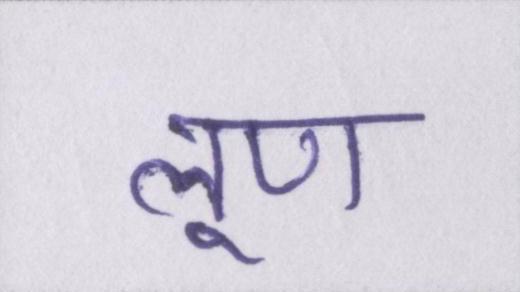 लूण